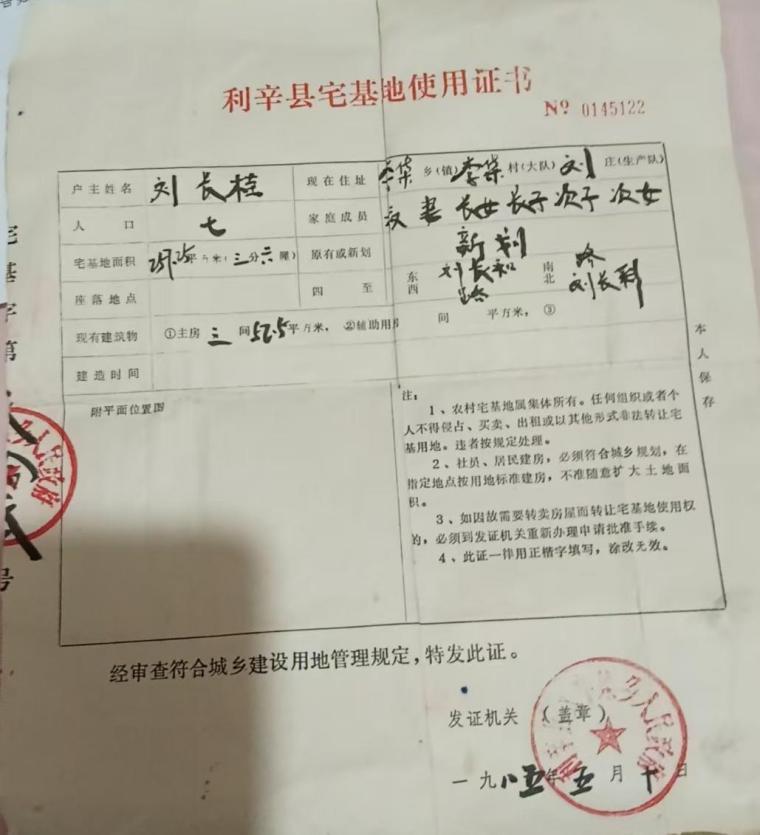 利辛县宅基地使用证书
Nº 0145122
户主姓名 刘长桂 现在住址 李柴乡(镇)李柴村(大队)刘庄(生产队)
人口 七 家庭成员 妻 长女 长子 次子 次女
宅基地面积 平方米(三分六厘) 原有或新划 新划
座落地点 四至 东 刘长和 南 路
西 路 北 刘长科
现有建筑物 ①主房 三 间 52.5 平方米, ②辅助用房 间 平方米, ③
建造时间
附平面位置图
注:
1、农村宅基地属集体所有。任何组织或者个
人不得侵占、买卖、出租或以其他形式非法转让宅
基用地。违者按规定处理。
2、社员、居民建房,必须符合城乡规划,在
指定地点按用地标准建房,不准随意扩大土地面
积。
3、如因故需要转卖房屋而转让宅基地使用权
的,必须到发证机关重新办理申请批准手续。
4、此证一律用正楷字填写,涂改无效。
本人保存
宅基字第
号
经审查符合城乡建设用地管理规定,特发此证。
发证机关 (盖章)
乡人民政府
一九八五年五月十日